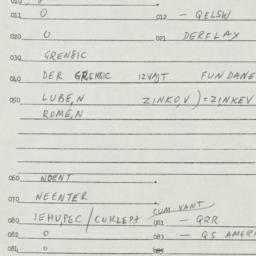 011 0 010 - QELSW
020 0 021 DERFLAX
030 GRENBIC
040 DER GRENBIC 12VAJT FUNDANE
050 LUBE,N ZINKO,V) = ZINKEV
ROME,N
060 NOENT
070 NEENTER
CUM VANT
080 IEHUPEC/CUKLEPT 081 - QRR
082 0 083 - QS AMERI
084 0